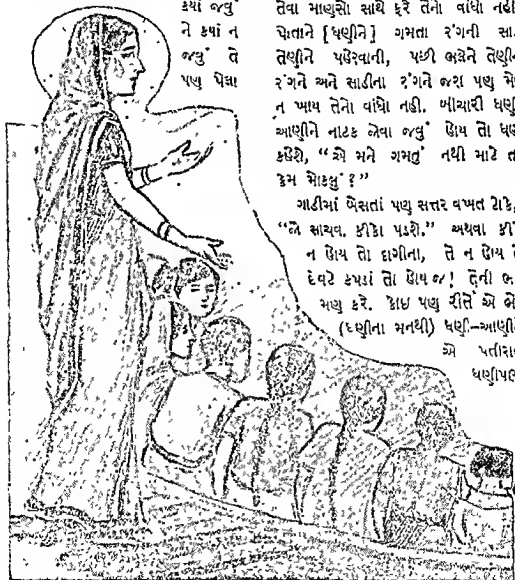 કયાં જવું તેવા માણસો સાથે ફરે તેનો વાંધો નહીં
ને કયાં ન પોતાને [ધણીને] ગમતા રંગની સા
જવું તે તેણીને પહેરવાની, પછી ભલેને તેણીન
પણ પેલા રંગને અને સાડીના રંગને જરા પણ મે
ન ખાય તેનો વાંધો નહી. બીચારી ધણી
આણીને નાટક જોવા જવું હોય તો ધણ
કહેશે, “એ મને ગમતું નથી માટે ત
કેમ મોકલું ?”
ગાડીમાં બેસતાં પણ સત્તર વખત ટોકે,
“જો સાચવ. કીકો પડશે.” અથવા કી
ન હોય તો દાગીના, તે ન હોય ત
દેવટે કપડાં તો હોય જ! તેની ભ
મણ કરે. કોઇ પણ રીતે એ બે
(ધણીના મનથી) ધણી–આણીને
એ પતીરા
ધણીપણ